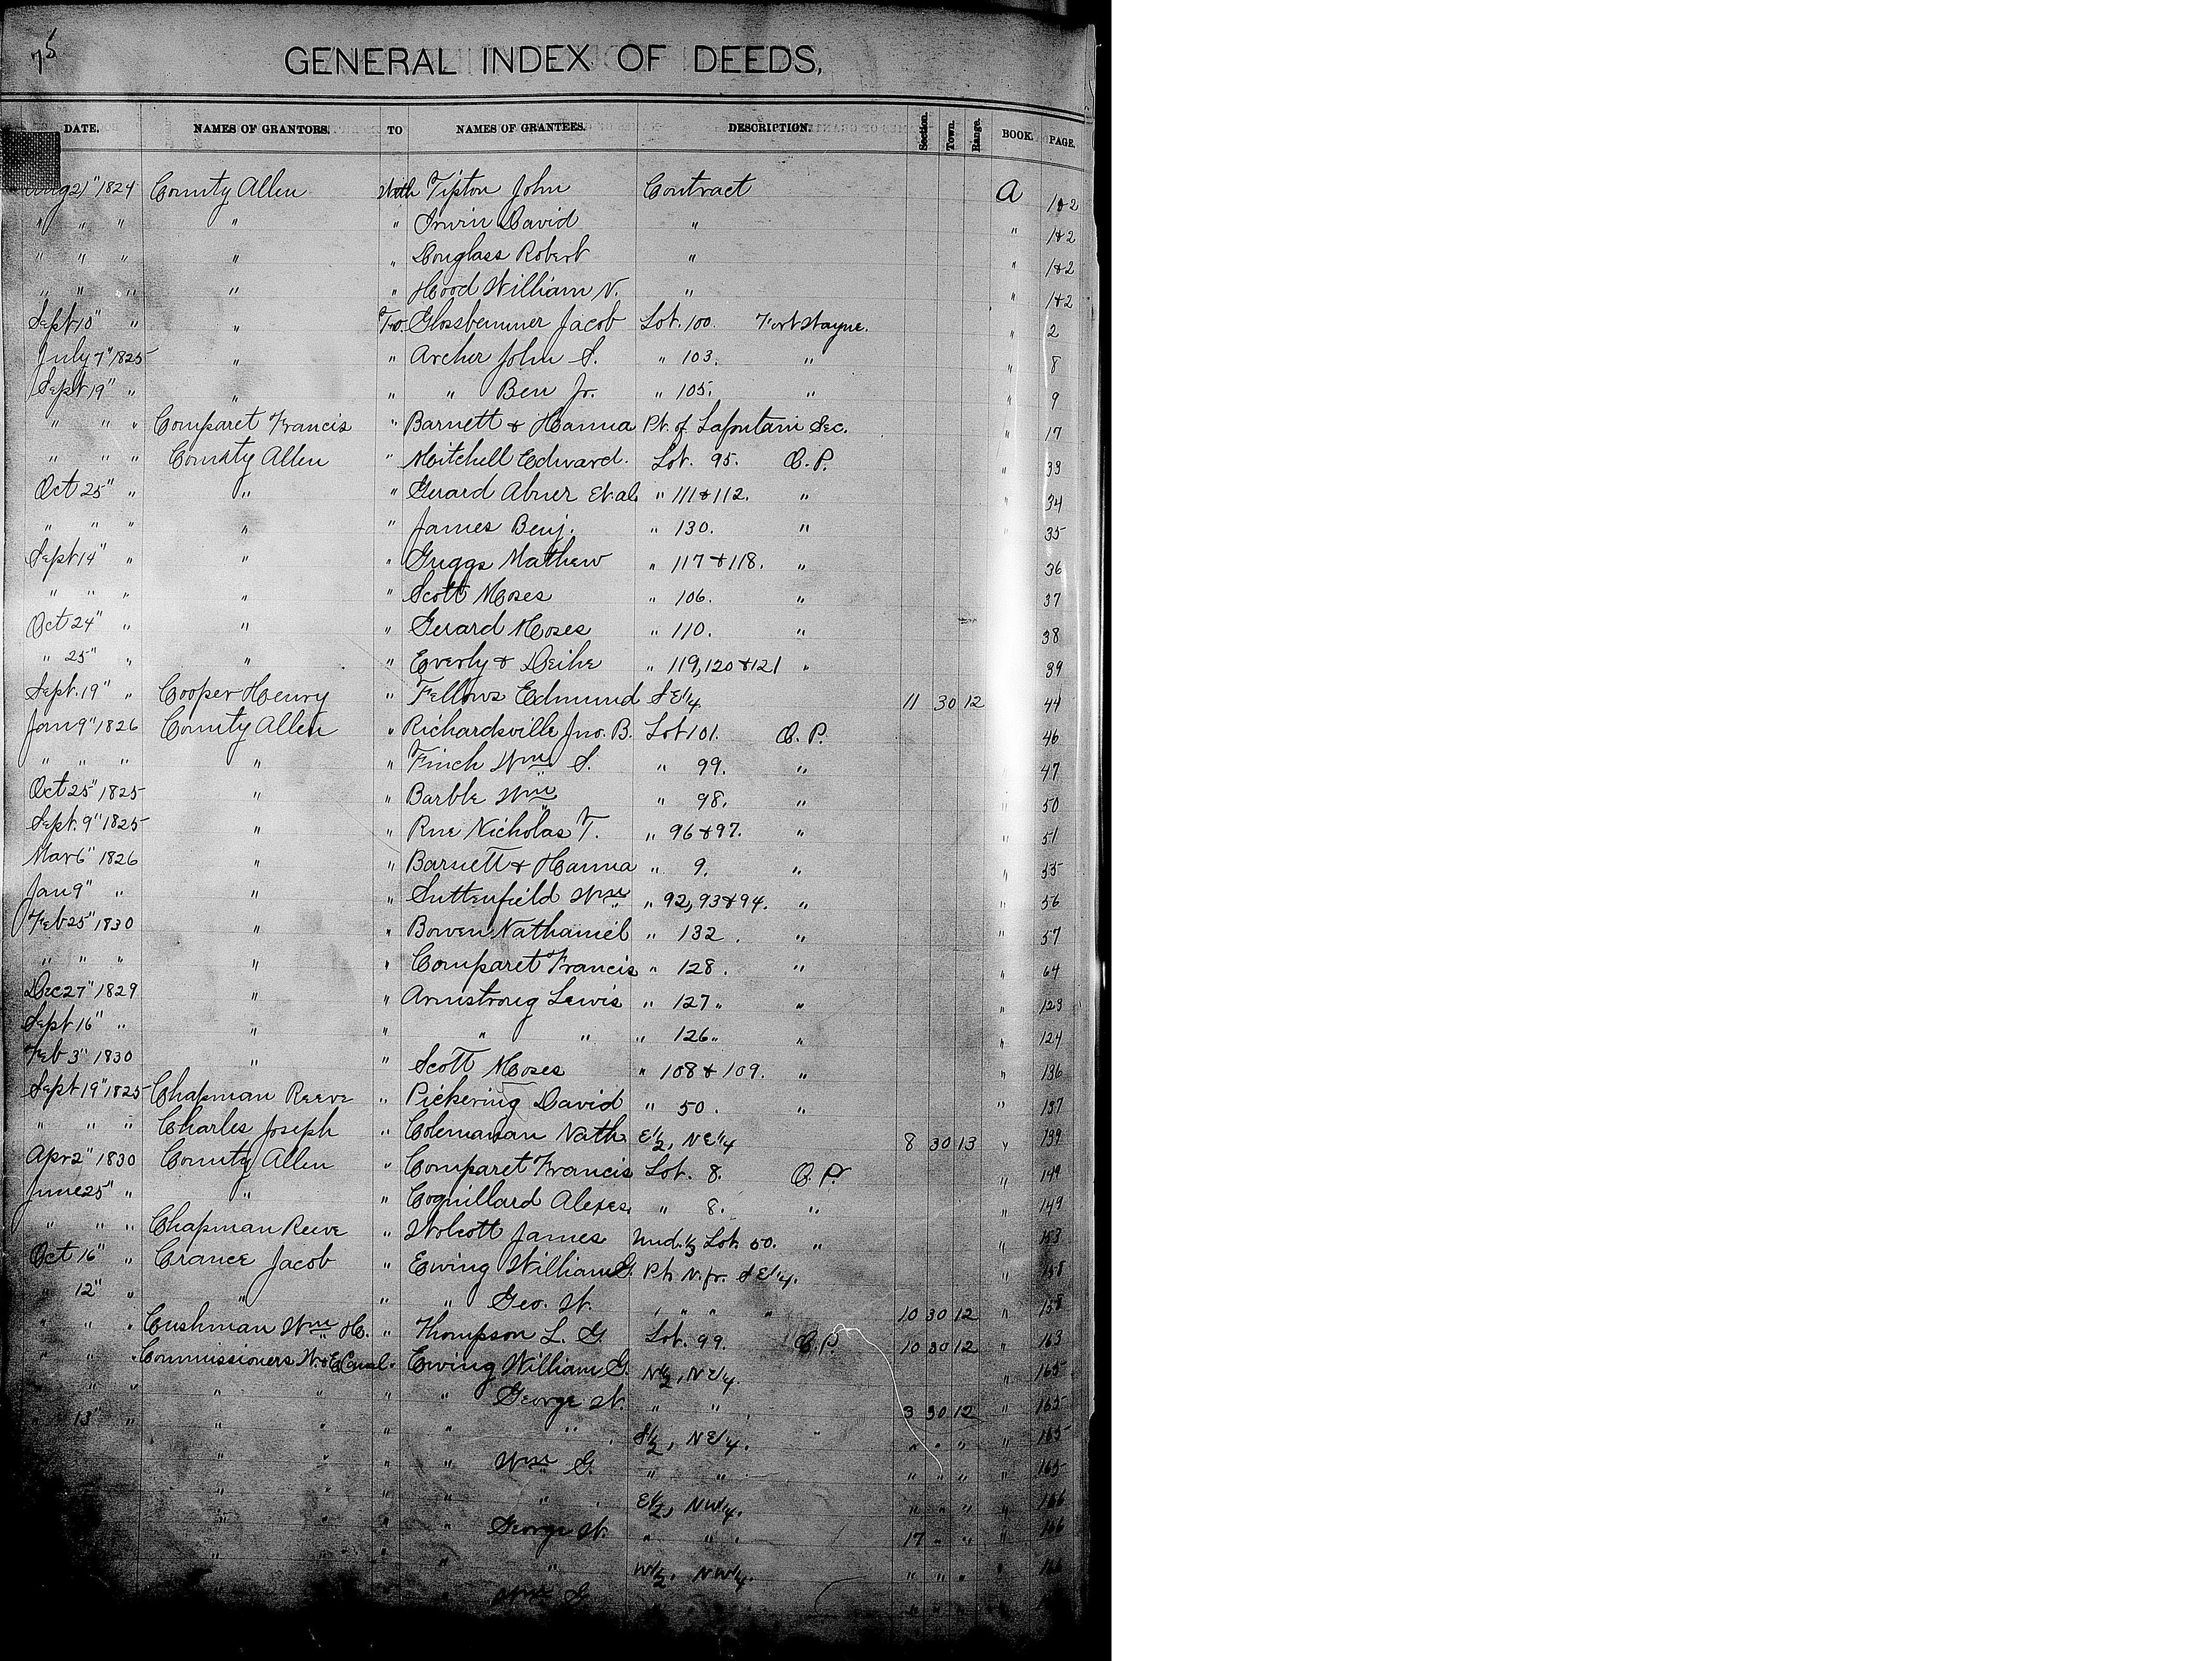 75
GENERAL INDEX OF DEEDS,
DATE. NAMES OF GRANTORS. TO NAMES OF GRANTEES. DESCRIPTION. Section. Town. Range. BOOK. PAGE.
Aug 21" 1824 County Allen With Tipton John Contract A 1&2
" " " " " Irwin David " " 1&2
" " " " " Douglass Robert " " 1&2
" " " " " Hood William N. " " 1&2
Sept 10" " " To Glossbemmer Jacob Lot. 100. Fort Wayne. " 2
July 7" 1825 " " Archer John S. " 103. " " 8
Sept 19" " " " " Ben Jr. " 105. " " 9
" " " Comparet Francis " Barnett & Hanna Pt. of Lafontain Sec. " 17
" " " County Allen " Mitchell Edward. Lot. 95. O. P. " 33
Oct 25" " " " Gerard Abner Et al. " 111 & 112. " " 34
" " " " " James Benj. " 130. " 35
Sept 14" " " " Griggs Mathew " 117 & 118. " 36
" " " " " Scott Moses " 106. " 37
Oct 24" " " " Gerard Moses " 110. " 38
" 25" " " " Everly & Deihe " 119, 120 & 121 " 39
Sept. 19" " Cooper Henry " Fellows Edmund SE 1/4 11 30 12 44
Jan 9" 1826 County Allen " Richardsville Jno. B. Lot 101. O. P. 46
" " " " " Finch Wm S. " 99. " 47
Oct 25" 1825 " " Barble Wm " 98. " " 50
Sept. 9" 1825 " " Rue Nicholas T. " 96 & 97. " " 51
Mar 6" 1826 " " Barnett & Hanna " 9. " " 55
Jan 9" " " " Suttenfield Wm " 92, 93 & 94. " " 56
Feb 25" 1830 " " Bowen Nathaniel " 132. " " 57
" " " " " Comparet Francis " 128. " " 64
Dec 27" 1829 " " Armstrong Lewis " 127 " " " 123
Sept 16" " " " " " " 126 " " " 124
Feb 3" 1830 " " Scott Moses " 108 & 109. " " 136
Sept 19" 1825 Chapman Reeve " Pickering David " 50. " " 137
" " " Charles Joseph " Colemanan Nath. E 1/2, NE 1/4 8 30 13 " 139
Apr 2" 1830 County Allen " Comparet Francis Lot. 8. O. P. " 149
June 25" " " " Coquillard Alexes. " 8. " " 149
" " " Chapman Reeve " Wolcott James Und. 1/3 Lot 50. " " 153
Oct 16" " Crance Jacob " Ewing William G. Pt. N. fr. SE 1/4. " 158
" 12" " " " " Geo. W. " " " 10 30 12 " 158
" " " Cushman Wm H. " Thompson L. G. Lot. 99. O. P. 10 30 12 " 163
" " " Commissioners W. & E Canal " Ewing William G. N 1/2, NE 1/4. " 165
" " " " " " George W. " " 3 30 12 " 165
" 13" " " " " " " S 1/2, NE 1/4. " " " " 165
" " " " Wm G. " " " " " " 165
" " " " E 1/2, NW 1/4. " " " " 166
" " " " George W. " " 17 " " " 166
" " " " " W 1/2, NW 1/4. " " " " 166
" Wm G. " " "